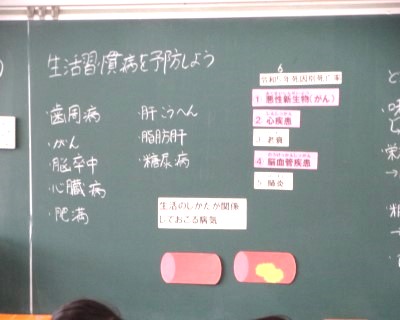 生活習慣病を予防しよう
・歯周病
・がん
・脳卒中
・心臓病
・肥満
・肝こうへん
・脂肪肝
・糖尿病
6
1 悪性新生物(がん)
2 心疾患
3 老衰
4 脳血管疾患
5 肺炎
生活のしかたが関係
しておこる病気